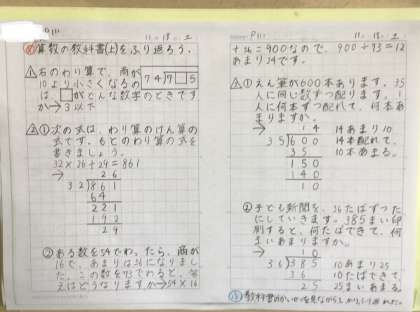 P111
11-18-2
㊟算数の教科書(上)をふり返ろう。
△1 右のわり算で、商が
10より小さくなるの
74)7□5
は□がどんな数字のときです
か→3以下
△2①次の式は、わり算のけん算の
式です。もとのわり算の式を
書きましょう。
32×26+29=861
→
26
32)861
64
221
192
29
②ある数を54でわったら、商が
16で、あまりは36になりまし
た。この数を73でわると、答
えはどうなりますか→54×16
P111
11-18-2
+36=900なので、900÷73=12
あまり24です。
△3①えん筆が600本あります。35
人に同じ数ずつ配ります。1
人に何本ずつ配れて、何本あ
まりますか。
→
14
14あまり10
35)600
14本配れて、
35
10本あまる。
150
140
10
②子ども新聞を、36まいずつた
ばにしていきます。385まい印
刷すると、何たばできて、何
まいあまりますか。
→
10
36)385
10あまり25
36
10たばできて、
25
25まいあまる。